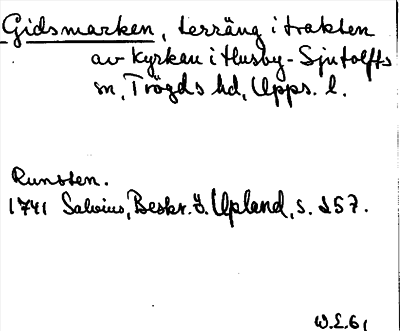 Gidsmarken, terräng i trakten
av kyrkan i Husby-Sjutolfts
sn, Trögds hd, Upps. l.
Runsten.
1741 Salvius, Beskr. ö. Upland, s. 257.
W.L.61